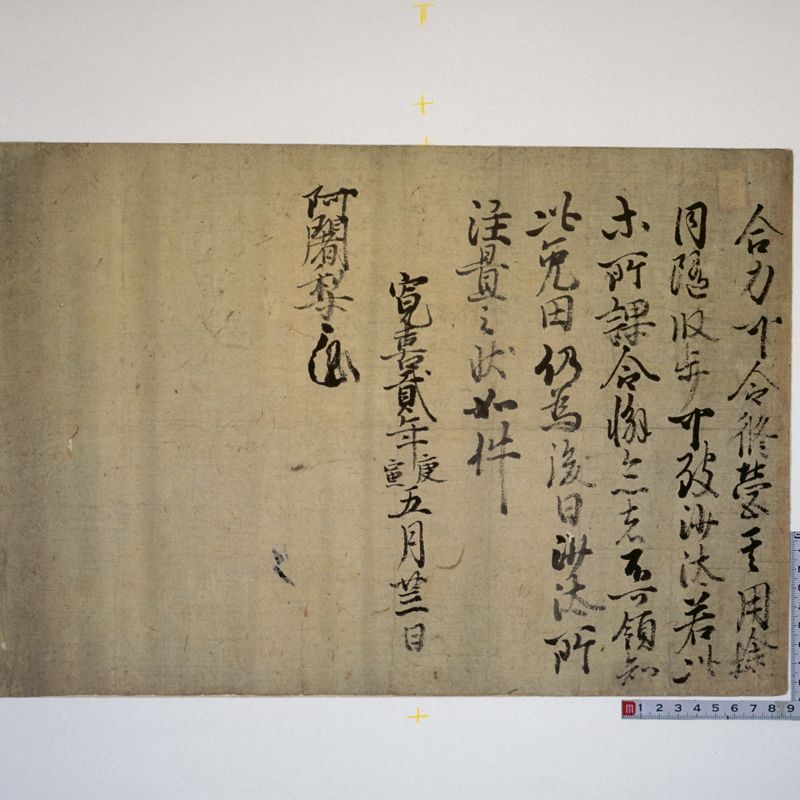 合力可令修営其用途
同随段歩可致沙汰若此
等所課合懈怠者不可領知
此免田仍為後日沙汰所
注置之状如件
寛喜貳年庚寅五月廿三日
阿闍梨
m 1 2 3 4 5 6 7 8 9